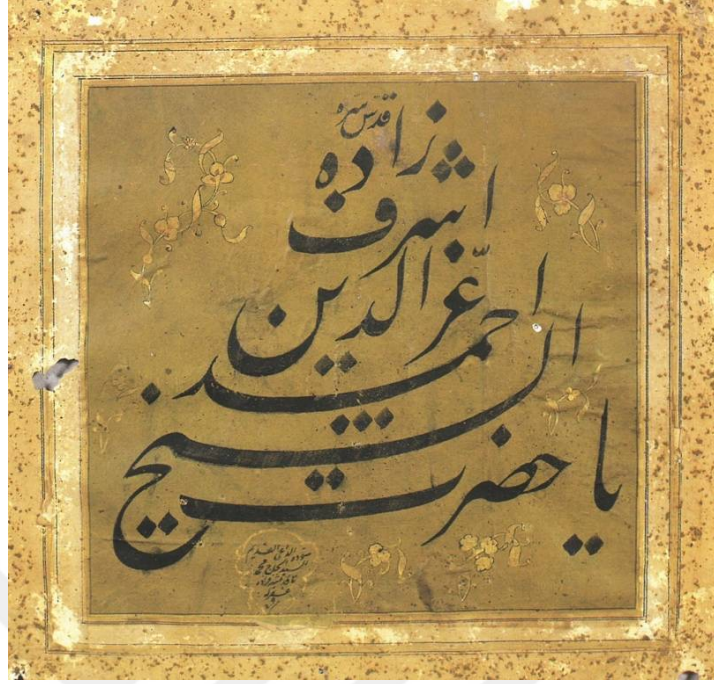 يا حضرت
الشيخ
احمد
عزّ الدين
اشرف
زاده
قدّس سرّه